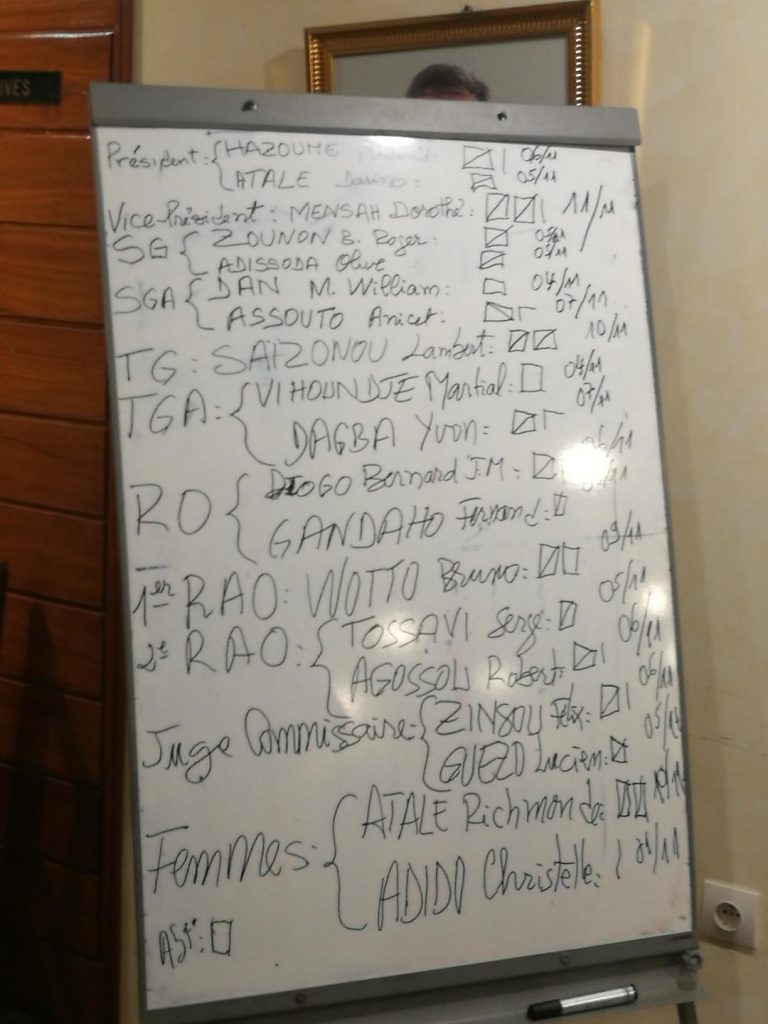 IVES
Président: HAZOUME 06/11
ATALE Darino: 05/11
Vice-Président: MENSAH Dorothé: 11/11
SG ZOUNON B. Roger:
ADISSODA Olive
SGA DAN M. William: 04/11
ASSOUTO Anicet: 07/11
TG: SAIZONOU Lambert: 10/11
TGA: VIHOUNDJE Martial: 04/11
DAGBA Yvon: 07/11
RO DJOGO Bernard J.M: 06/11
GANDAHO Fernand: /11
1er RAO: WOTTO Bruno: 09/11
2e RAO: TOSSAVI Serge: 05/11
AGOSSOU Robert: 06/11
Juge Commissaire: ZINSOU Felix: 06/11
GUEZO Lucien: 05/11
Femmes: ATALE Richmonde:
ADIDO Christelle: 01/11
Abst°: